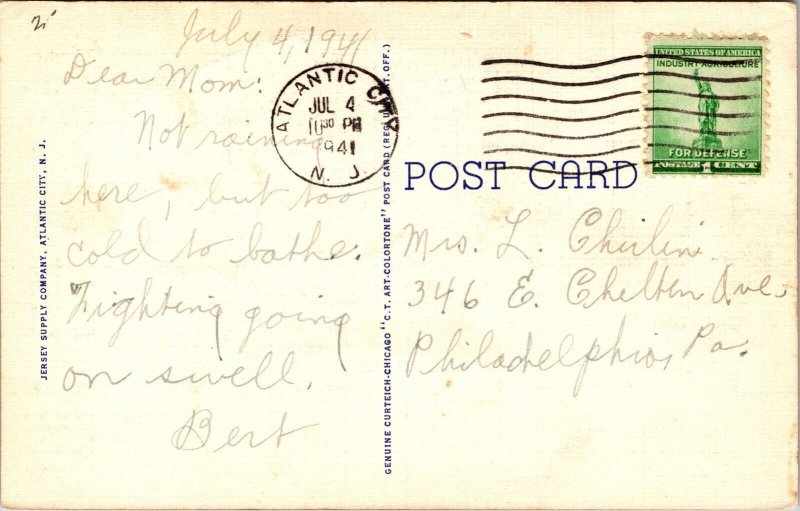 July 4, 1941
Dear Mom:
Not raining
here, but too
cold to bathe.
Fighting going
on swell.
Bert
ATLANTIC CITY
JUL 4
10 30 PM
1941
N. J.
UNITED STATES OF AMERICA
INDUSTRY AGRICULTURE
FOR DEFENSE
POSTAGE 1 CENT
POST CARD
Mrs. L. Chirlin
346 E. Chelten Ave.
Philadelphia, Pa.
JERSEY SUPPLY COMPANY, ATLANTIC CITY, N. J.
GENUINE CURTEICH-CHICAGO "C.T. ART-COLORTONE" POST CARD (REG. U.S. PAT. OFF.)